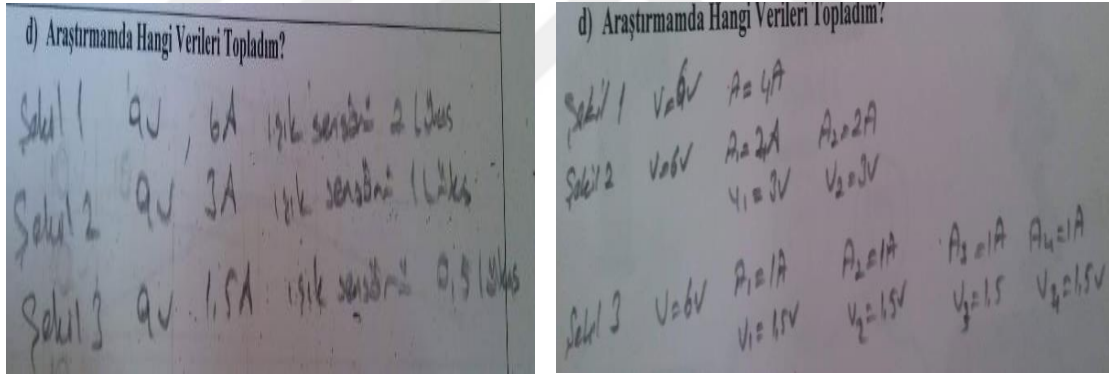 d) Araştırmamda Hangi Verileri Topladım?
Şekil 1 9V, 6A ışık sensörü 2 Lüks
Şekil 2 9V 3A ışık sensörü 1 Lüks
Şekil 3 9V 1,5A ışık sensörü 0,5 Lüks
d) Araştırmamda Hangi Verileri Topladım?
Şekil 1 V=6V A=4A
Şekil 2 V=6V A₁=2A A₂=2A
V₁=3V V₂=3V
Şekil 3 V=6V A₁=1A A₂=1A A₃=1A A₄=1A
V₁=1,5V V₂=1,5V V₃=1,5 V₄=1,5V